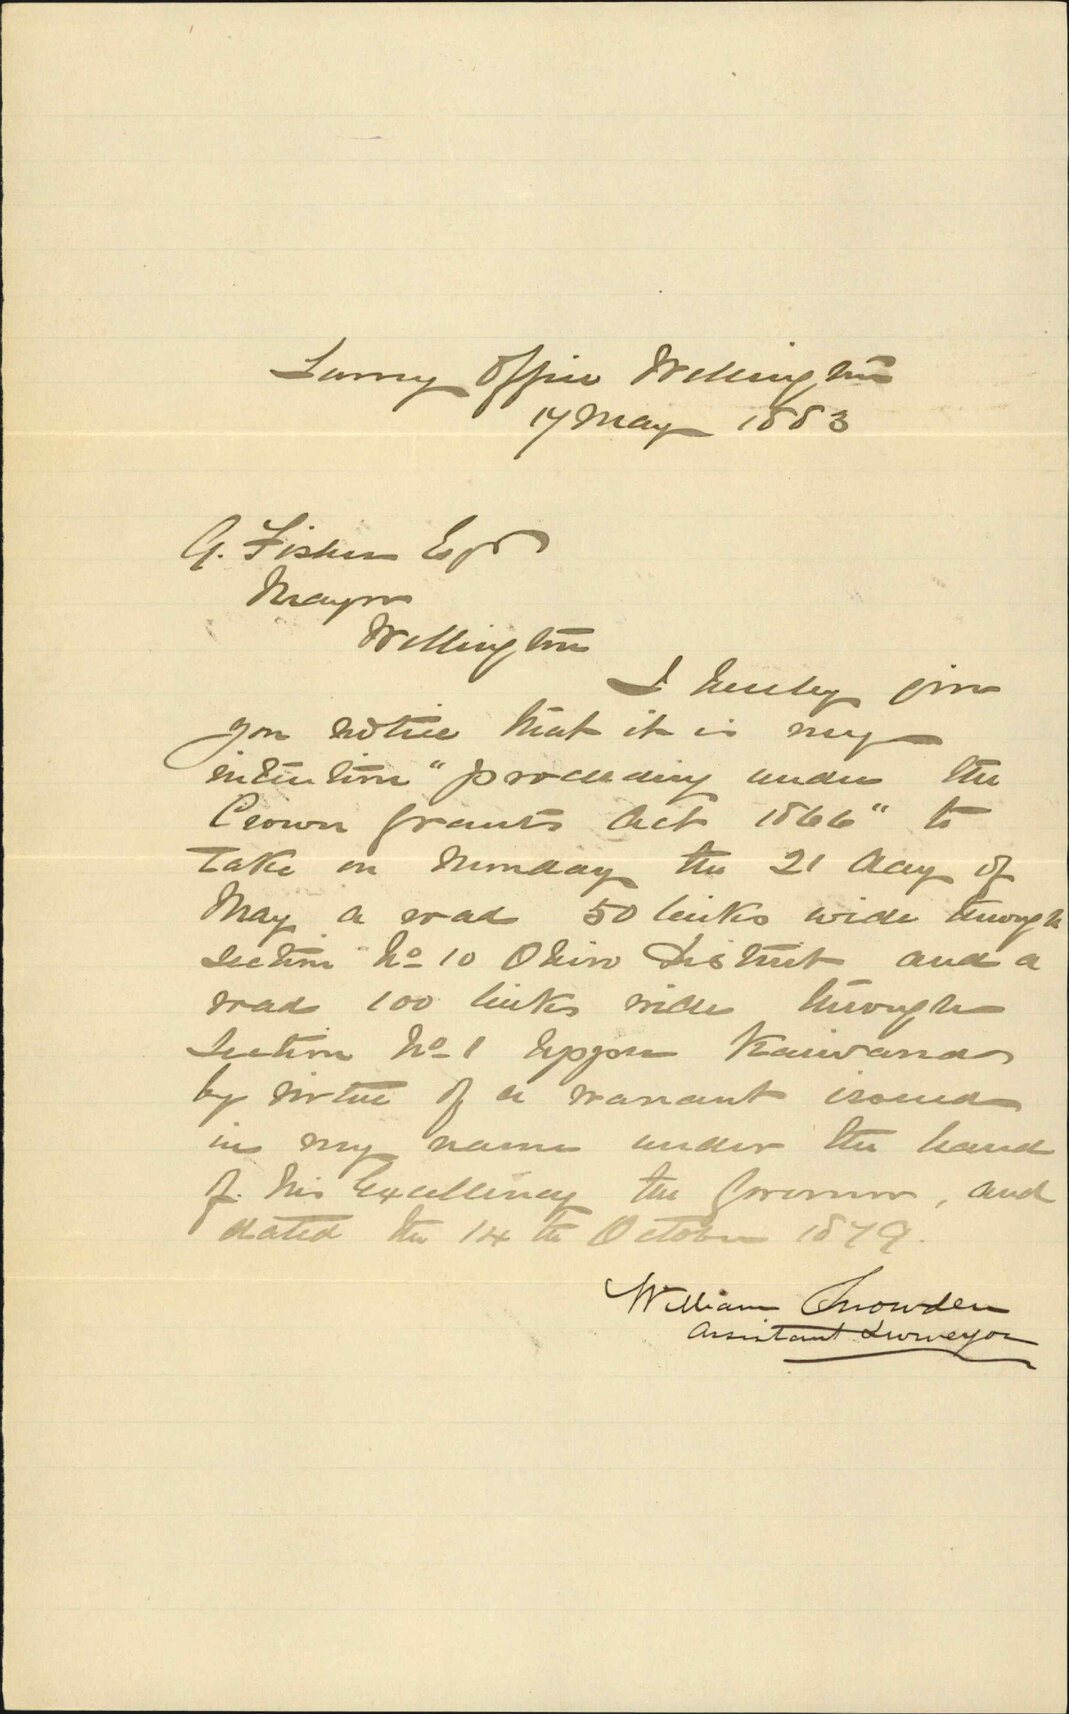 Survey Office Wellington
17 May 1883
G. Fisher Esqr
Mayor
Wellington
I hereby give
you notice that it is my
intention "proceeding under the
Crown Grants Act 1866" to
take on Monday the 21 day of
May a road 50 links wide through
Section No 10 Ohiro District and a
road 100 links wide through
Section No 1 Upper Kaiwarra
by virtue of a warrant issued
in my name under the hand
of His Excellency the Governor, and
dated the 14th October 1879.
William Snowden
Assistant Surveyor